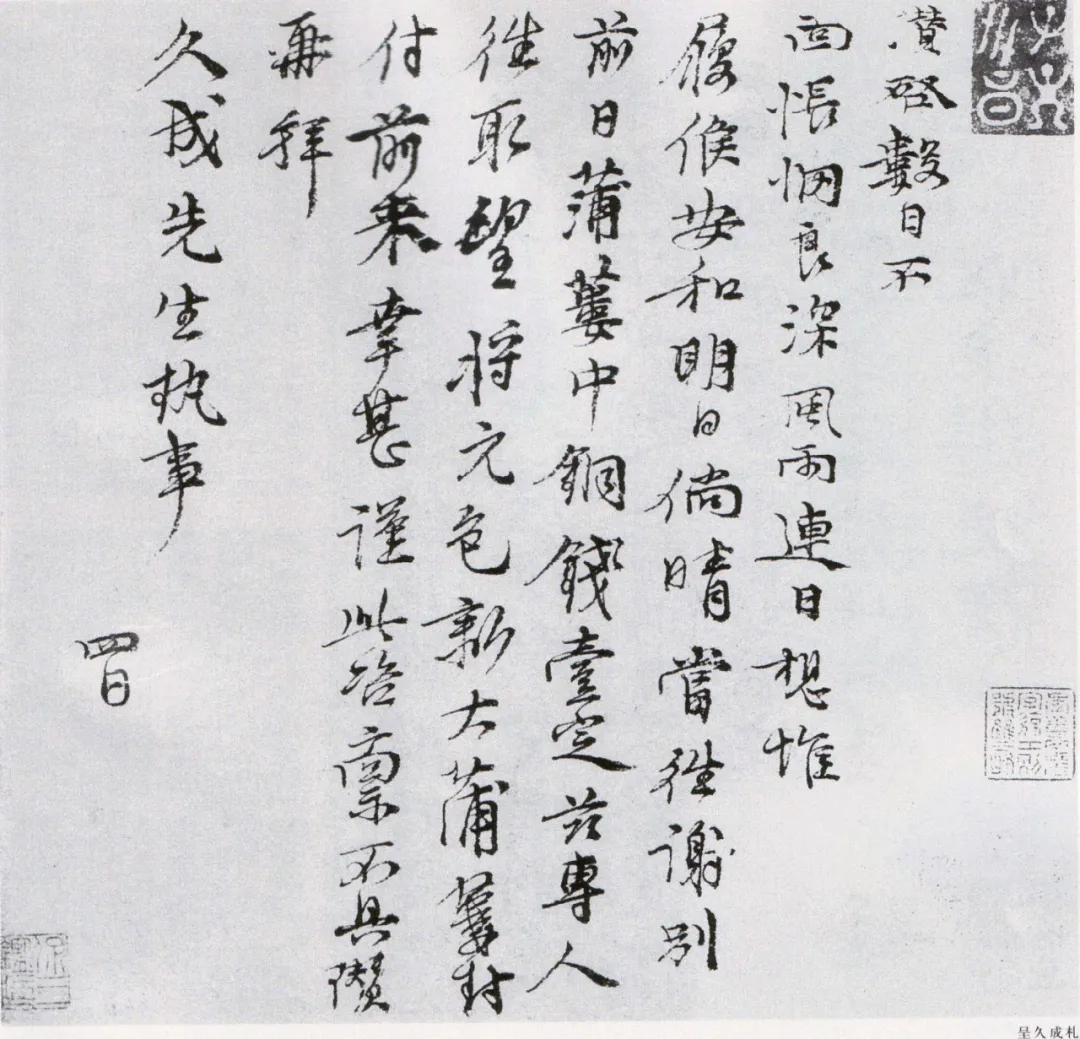 瓉啓數日不
面悵惘良深風雨連日想惟
履候安和明日倘晴當往謝別
前日蒲蔞中銅錢壹定茲專人
往取望將元包新大蒲蔞封
付前來幸甚謹此咨稟不具瓉
再拜
久成先生執事
四日
呈久成札